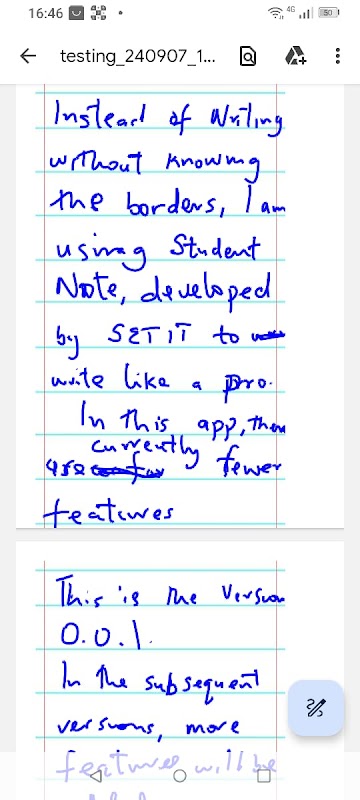 16:46 4G 50
testing_240907_1...
Instead of Writing
without knowing
the borders, I am
using Student
Note, developed
by SETIT to
write like a pro.
In this app, there
currently
are fewer
features
This is the Version
0.0.1.
In the subsequent
versions, more
features will be